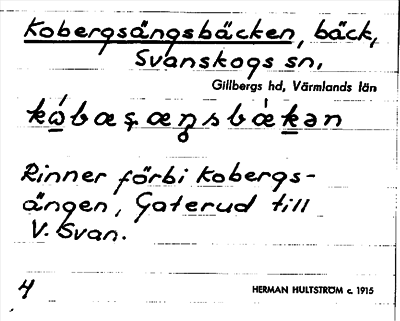 Kobergsängsbäcken, bäck,
Svanskogs sn,
Gillbergs hd, Värmlands län
Rinner förbi Kobergs-
ängen, Gaterud till
V. Svan.
4
HERMAN HULTSTRÖM c. 1915